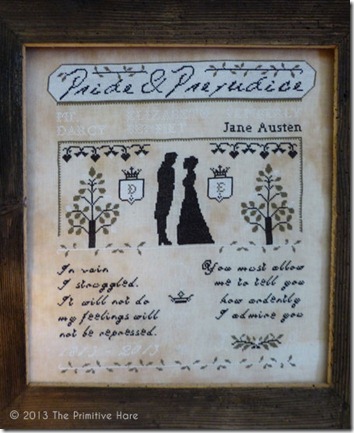 Pride & Prejudice
MR ELIZABETH
DARCY
Jane Austen
In vain
I struggled.
It will not do
my feelings will
not be repressed.
You must allow
me to tell you
how ardently
I admire you
1813 2013
© 2013 The Primitive Hare